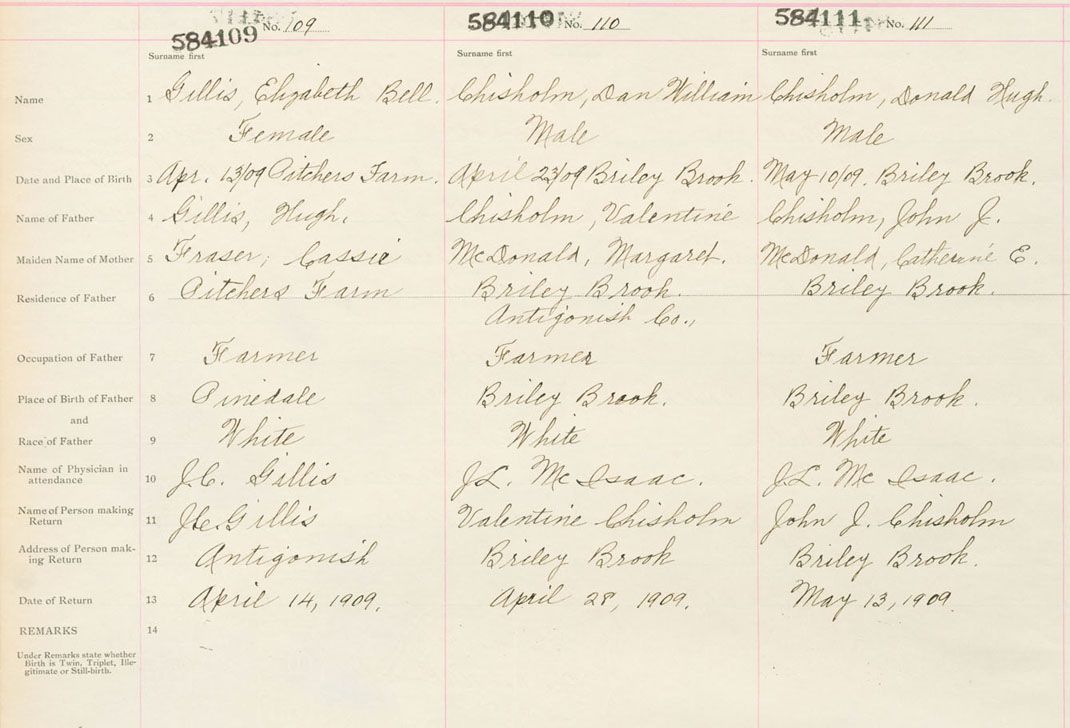 584109 No. 109 584110 No. 110 584111 No. 111
Surname first Surname first Surname first
Name 1 Gillis, Elizabeth Bell. Chisholm, Dan William Chisholm, Donald Hugh.
Sex 2 Female Male Male
Date and Place of Birth 3 Apr. 13/09 Pitchers Farm. April 23/09 Briley Brook. May 10/09. Briley Brook.
Name of Father 4 Gillis, Hugh. Chisholm, Valentine Chisholm, John J.
Maiden Name of Mother 5 Fraser, Cassie McDonald, Margaret. McDonald, Catherine E.
Residence of Father 6 Pitchers Farm Briley Brook. Briley Brook.
Antigonish Co.,
Occupation of Father 7 Farmer Farmer Farmer
Place of Birth of Father 8 Pinedale Briley Brook. Briley Brook.
and
Race of Father 9 White White White
Name of Physician in
attendance 10 J.C. Gillis J.L. Mc Isaac. J.L. Mc Isaac.
Name of Person making
Return 11 J.C. Gillis Valentine Chisholm John J. Chisholm
Address of Person mak-
ing Return 12 Antigonish Briley Brook Briley Brook.
Date of Return 13 April 14, 1909. April 28, 1909. May 13, 1909.
REMARKS 14
Under Remarks state whether
Birth is Twin, Triplet, Ille-
gitimate or Still-birth.